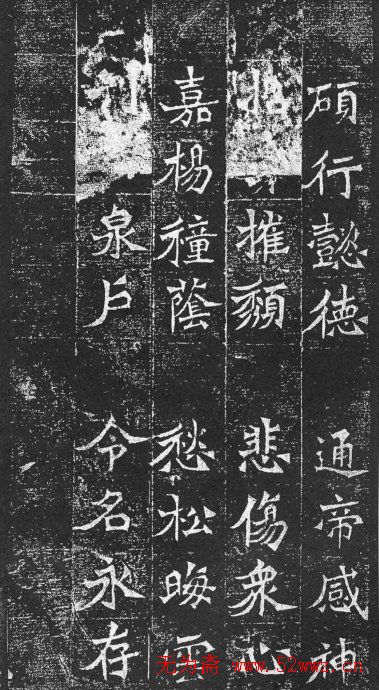 碩行懿德 通帝感神
摧頹 悲傷衆心
嘉楊穜蔭 愁松晦雲
泉戶 令名永存
无为斋 www.52wwz.cn